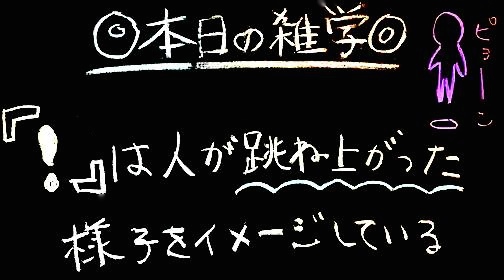 ◎本日の雑学◎
ピョーン
『!』は人が跳ね上がった
様子をイメージしている